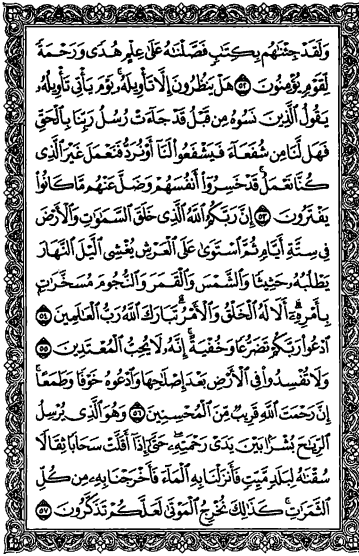 وَلَقَدْ جِئْنَاهُم بِكِتَابٍ فَصَّلْنَاهُ عَلَىٰ عِلْمٍ هُدًى وَرَحْمَةً
لِّقَوْمٍ يُؤْمِنُونَ ٥٢ هَلْ يَنظُرُونَ إِلَّا تَأْوِيلَهُۥ يَوْمَ يَأْتِى تَأْوِيلُهُۥ
يَقُولُ ٱلَّذِينَ نَسُوهُ مِن قَبْلُ قَدْ جَآءَتْ رُسُلُ رَبِّنَا بِٱلْحَقِّ
فَهَل لَّنَا مِن شُفَعَآءَ فَيَشْفَعُوا۟ لَنَآ أَوْ نُرَدُّ فَنَعْمَلَ غَيْرَ ٱلَّذِى
كُنَّا نَعْمَلُ ۚ قَدْ خَسِرُوٓا۟ أَنفُسَهُمْ وَضَلَّ عَنْهُم مَّا كَانُوا۟
يَفْتَرُونَ ٥٣ إِنَّ رَبَّكُمُ ٱللَّهُ ٱلَّذِى خَلَقَ ٱلسَّمَٰوَٰتِ وَٱلْأَرْضَ
فِى سِتَّةِ أَيَّامٍ ثُمَّ ٱسْتَوَىٰ عَلَى ٱلْعَرْشِ يُغْشِى ٱلَّيْلَ ٱلنَّهَارَ
يَطْلُبُهُۥ حَثِيثًا وَٱلشَّمْسَ وَٱلْقَمَرَ وَٱلنُّجُومَ مُسَخَّرَٰتٍۭ
بِأَمْرِهِۦٓ ۗ أَلَا لَهُ ٱلْخَلْقُ وَٱلْأَمْرُ ۗ تَبَارَكَ ٱللَّهُ رَبُّ ٱلْعَٰلَمِينَ ٥٤
ٱدْعُوا۟ رَبَّكُمْ تَضَرُّعًا وَخُفْيَةً ۚ إِنَّهُۥ لَا يُحِبُّ ٱلْمُعْتَدِينَ ٥٥
وَلَا تُفْسِدُوا۟ فِى ٱلْأَرْضِ بَعْدَ إِصْلَٰحِهَا وَٱدْعُوهُ خَوْفًا وَطَمَعًا ۚ
إِنَّ رَحْمَتَ ٱللَّهِ قَرِيبٌ مِّنَ ٱلْمُحْسِنِينَ ٥٦ وَهُوَ ٱلَّذِى يُرْسِلُ
ٱلرِّيَٰحَ بُشْرًۢا بَيْنَ يَدَىْ رَحْمَتِهِۦ ۖ حَتَّىٰٓ إِذَآ أَقَلَّتْ سَحَابًا ثِقَالًا
سُقْنَٰهُ لِبَلَدٍ مَّيِّتٍ فَأَنزَلْنَا بِهِ ٱلْمَآءَ فَأَخْرَجْنَا بِهِۦ مِن كُلِّ
ٱلثَّمَرَٰتِ ۚ كَذَٰلِكَ نُخْرِجُ ٱلْمَوْتَىٰ لَعَلَّكُمْ تَذَكَّرُونَ ٥٧